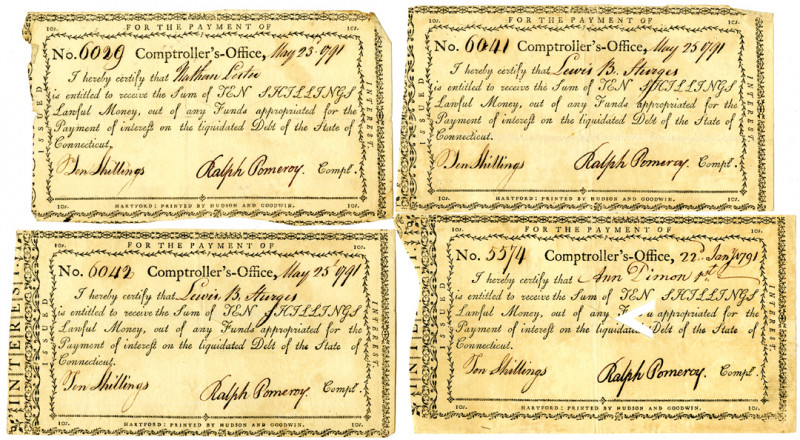 10s. FOR THE PAYMENT OF 10s.
No. 6029 Comptroller's-Office, May 23 1791
I hereby certify that Nathan Leslie
is entitled to receive the Sum of TEN SHILLINGS
Lawful Money, out of any Funds appropriated for the
Payment of interest on the liquidated Debt of the State of
Connecticut.
Ten Shillings Ralph Pomeroy. Compt.
10s. HARTFORD: PRINTED BY HUDSON AND GOODWIN. 10s.
ISSUED
INTEREST.
10s. FOR THE PAYMENT OF 10s.
No. 6041 Comptroller's-Office, May 25 1791
I hereby certify that Lewis B. Sturges
is entitled to receive the Sum of TEN SHILLINGS
Lawful Money, out of any Funds appropriated for the
Payment of interest on the liquidated Debt of the State of
Connecticut.
Ten Shillings Ralph Pomeroy. Compt.
10s. HARTFORD: PRINTED BY HUDSON AND GOODWIN. 10s.
ISSUED
INTEREST.
10s. FOR THE PAYMENT OF 10s.
No. 6042 Comptroller's-Office, May 25 1791
I hereby certify that Lewis B. Sturges
is entitled to receive the Sum of TEN SHILLINGS
Lawful Money, out of any Funds appropriated for the
Payment of interest on the liquidated Debt of the State of
Connecticut.
Ten Shillings Ralph Pomeroy. Compt.
10s. HARTFORD: PRINTED BY HUDSON AND GOODWIN. 10s.
INTEREST
ISSUED
INTEREST.
10s. FOR THE PAYMENT OF 10s.
No. 5574 Comptroller's-Office, 22d Jany 1791
I hereby certify that Ann Dimon
is entitled to receive the Sum of TEN SHILLINGS
Lawful Money, out of any appropriated for the
Payment of interest on the liquidated Debt of the State of
Connecticut.
Ten Shillings Ralph Pomeroy. Compt.
10s. HARTFORD: PRINTED BY HUDSON AND GOODWIN. 10s.
ISSUED
INTEREST.